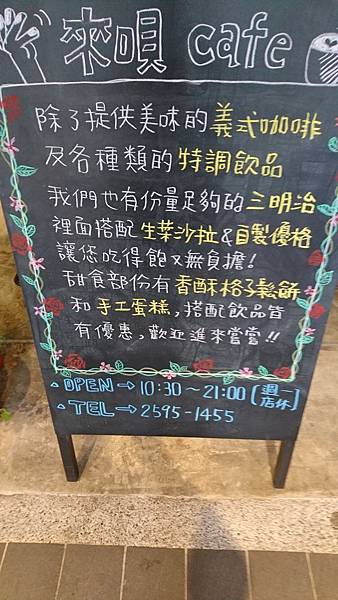 來唄 cafe
除了提供美味的義式咖啡
及各種類的特調飲品
我們也有份量足夠的三明治
裡面搭配生菜沙拉&自製優格
讓您吃得飽又無負擔!
甜食部份有香酥格子鬆餅
和手工蛋糕,搭配飲品皆
有優惠,歡迎進來嘗嘗!!
OPEN→10:30~21:00
店休
TEL→2595-1455